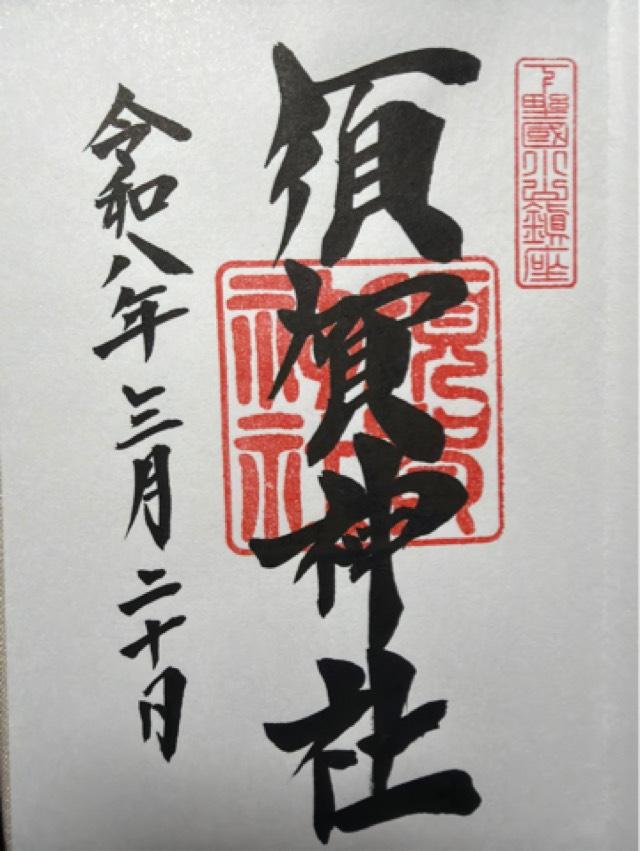 下野國小山鎮座
須賀神社
須賀神社
令和八年三月二十日